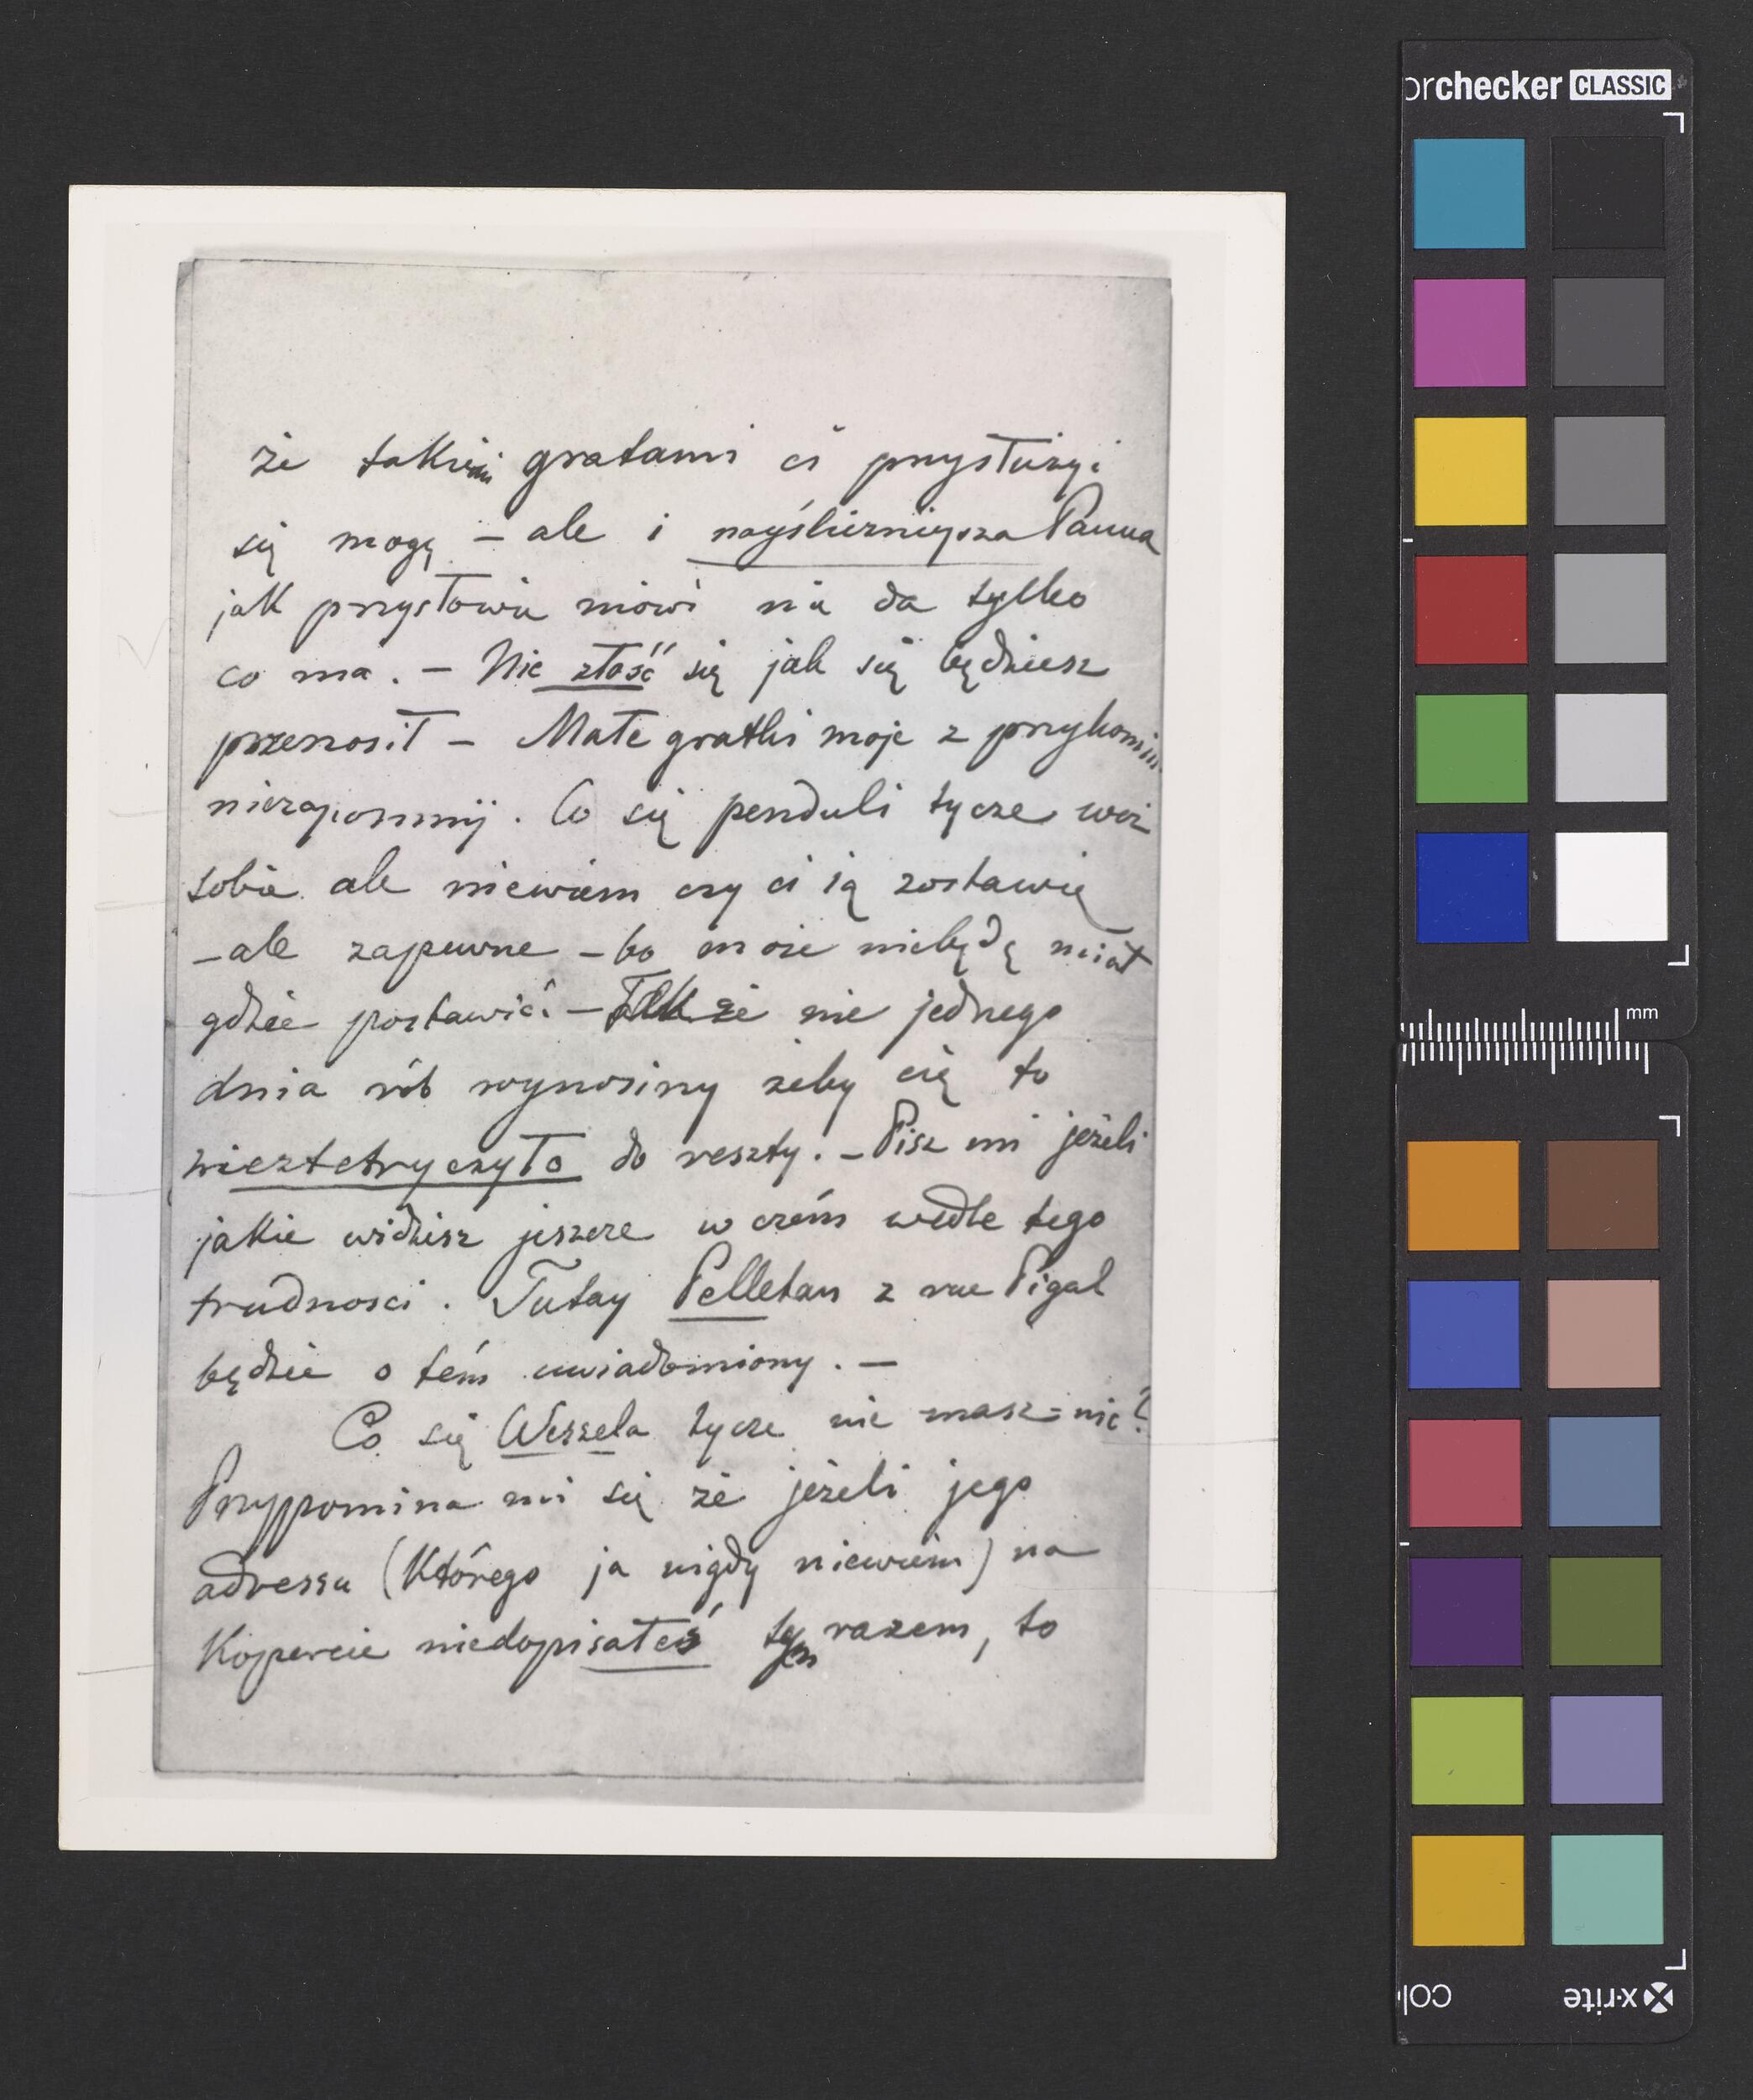 że takiemi gratami ci przysłużyć
się mogę – ale i nayślicznieysza Panna
jak przysłowie mówi nie da tylko
co ma. – Nie złość się jak się będziesz
przenosił – Małe gratki moje z przykomin
niezapomnij. Co się penduli tycze weź
sobie ale niewiem czy ci ią zostawię
– ale zapewne – bo może niebędę miał
gdzie postawić – Tak że nie jednego
dnia rób wynosiny żeby cię to
nieztetryczyło do reszty. – Pisz mi jeżeli
jakie widzisz jeszcze w czém wedle tego
trudnosci. Tutay Pelletan z rue Pigal
będzie o tém uwiadomiony. –
Co się Weszela tycze nie masz nic?
Przyppomina mi się że jeżeli jego
adressu (którego ja nigdy niewiem) na
Kopercie niedopisałeś tym razem, to
orchecker CLASSIC
mm
x-rite
col